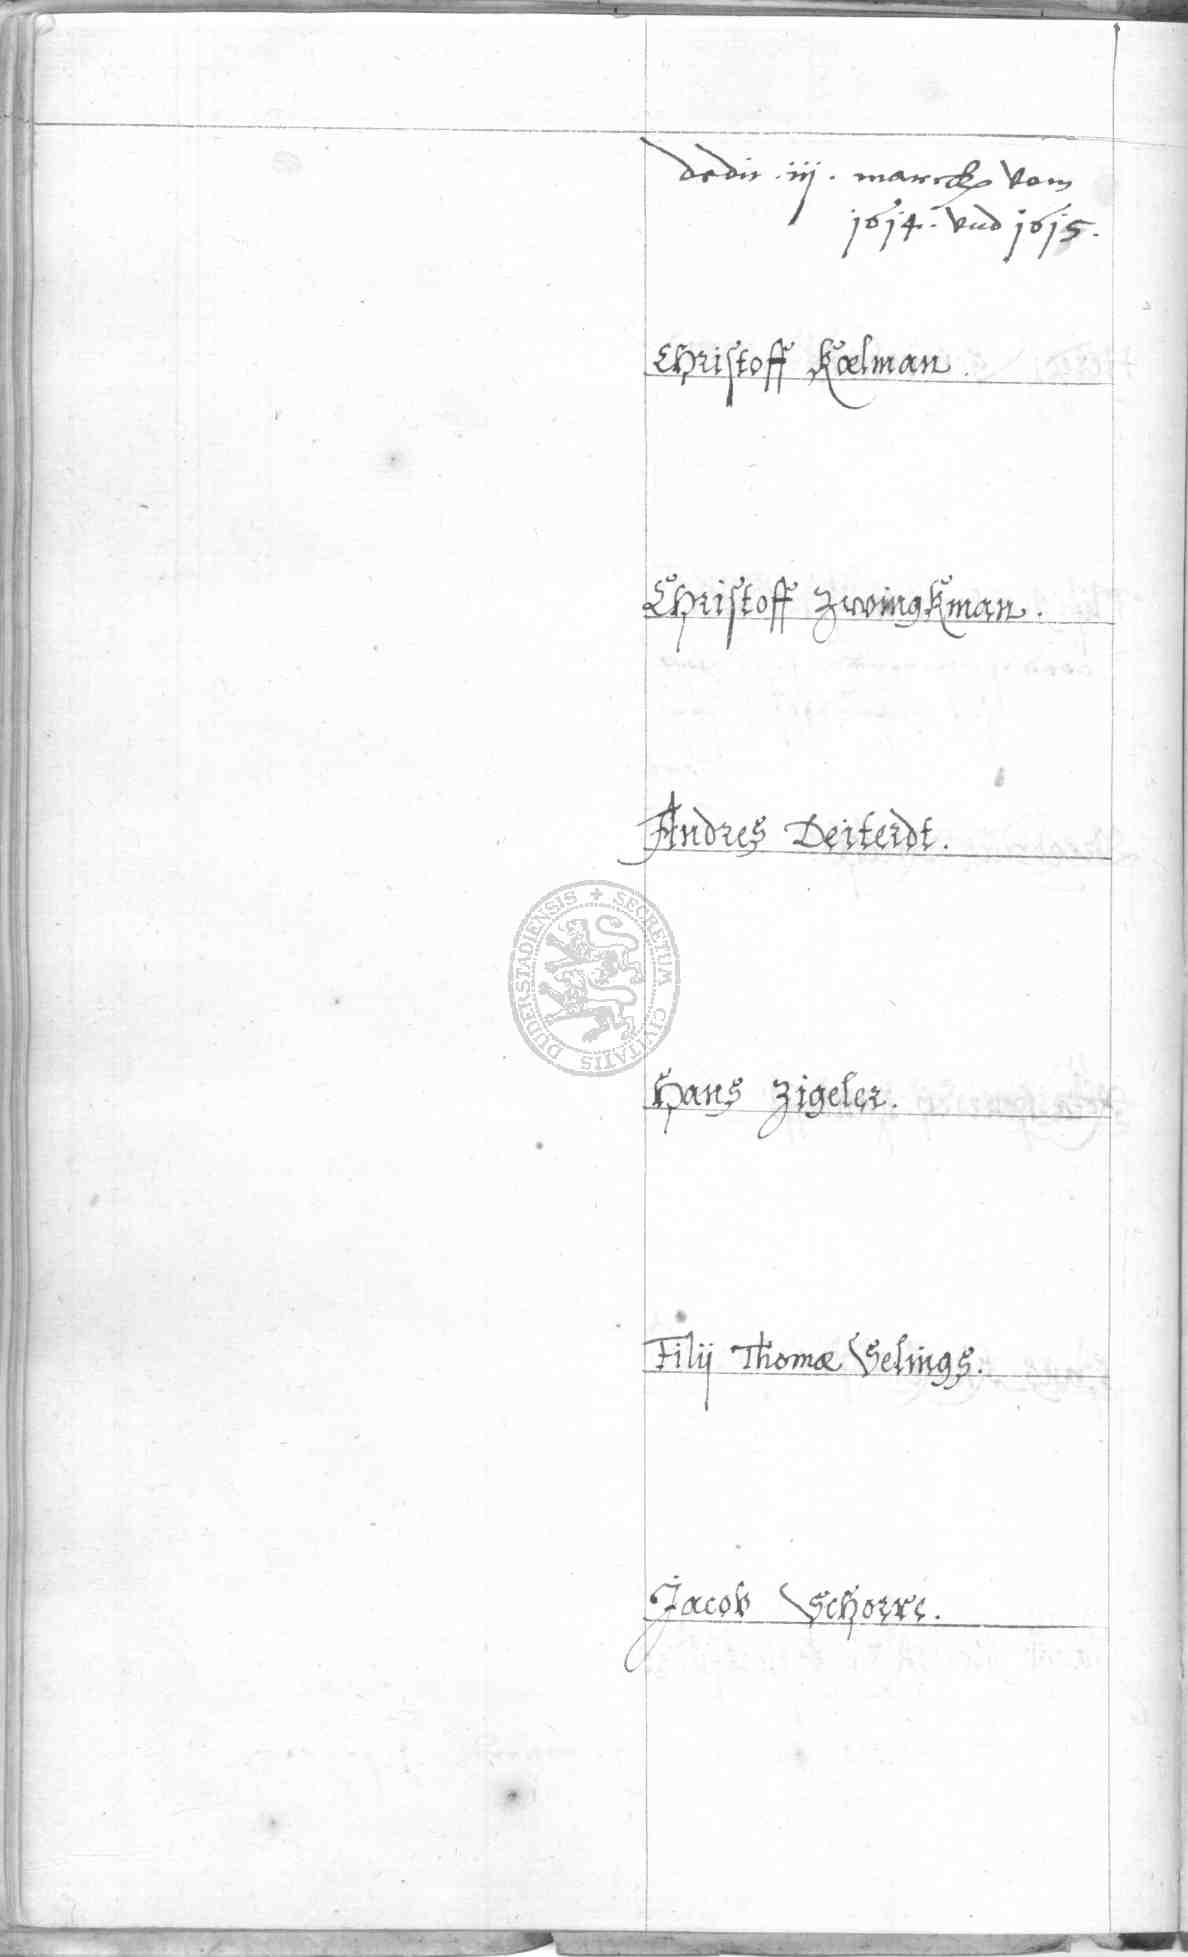 dedit .iij. marck vom
1614. vnd 1615.
Christoff Kœlman.
Christoff Zwingkman.
Andres Deiterdt.
SECRETUM CIVITATIS DUDERSTADIENSIS
Hans Zigeler.
Filij Thomæ Selings.
Jacob Schorre.